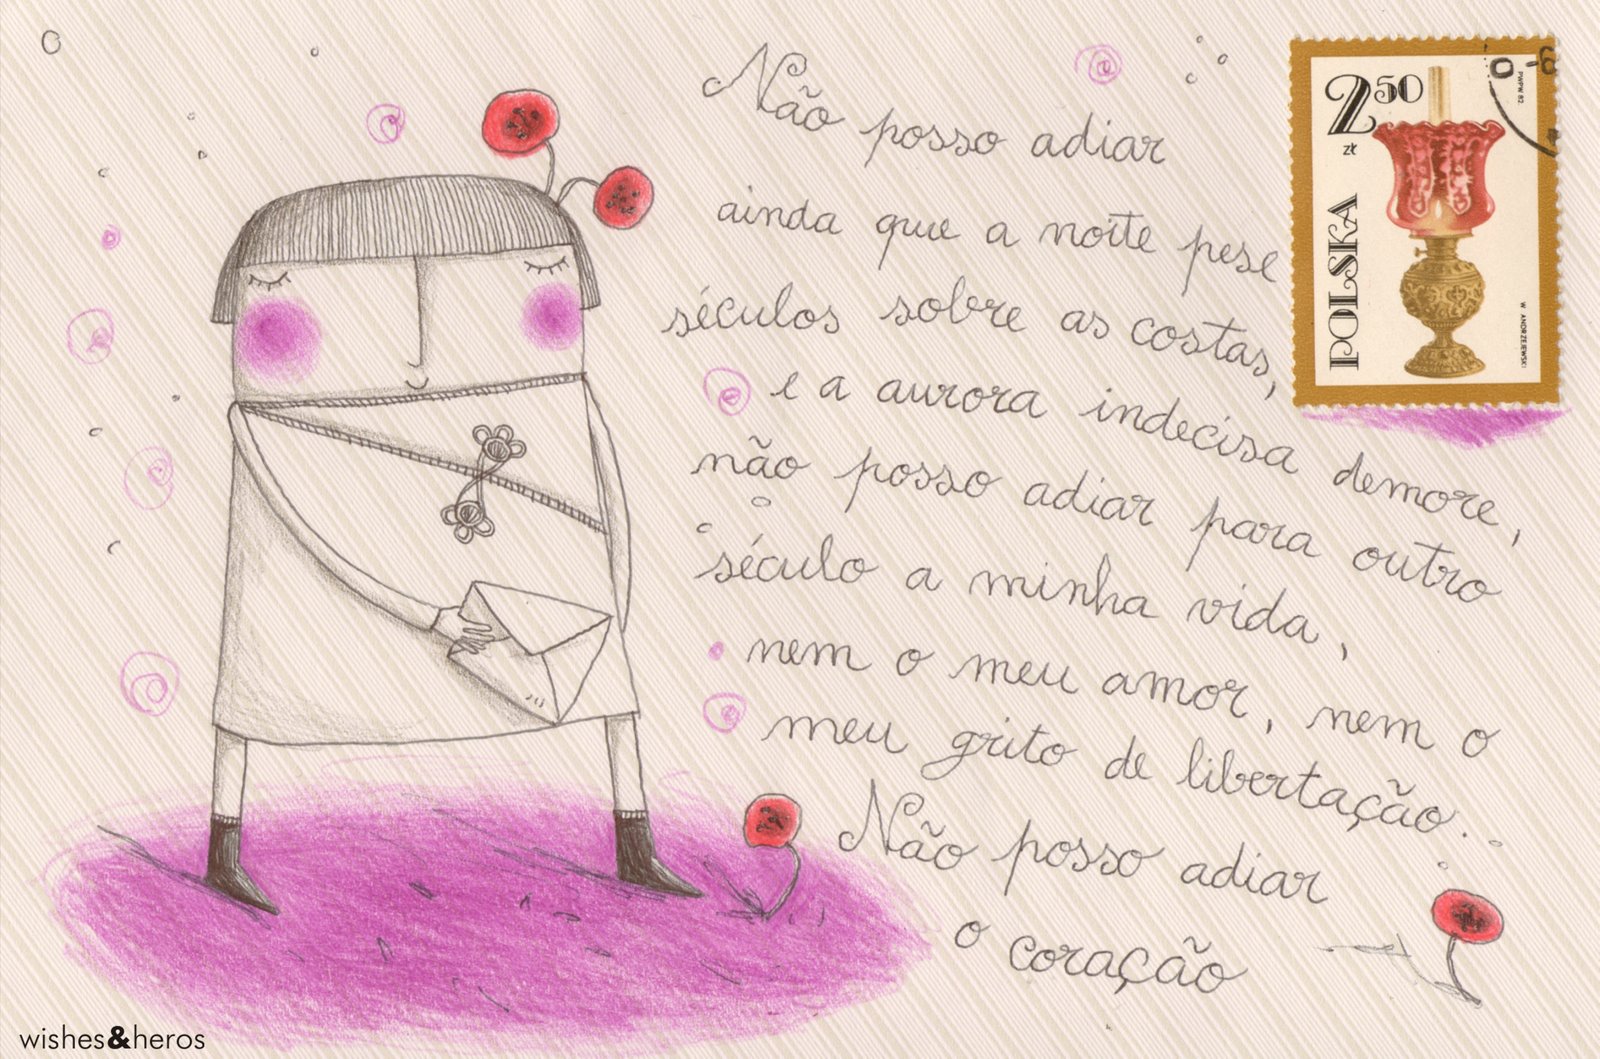 Não posso adiar
ainda que a noite pese
séculos sobre as costas,
e a aurora indecisa demore,
não posso adiar para outro
século a minha vida,
nem o meu amor, nem o
meu grito de libertação.
Não posso adiar
o coração
2 50
zł
POLSKA
PWPW 82.
W. ANDRZEJEWSKI
wishes&heros